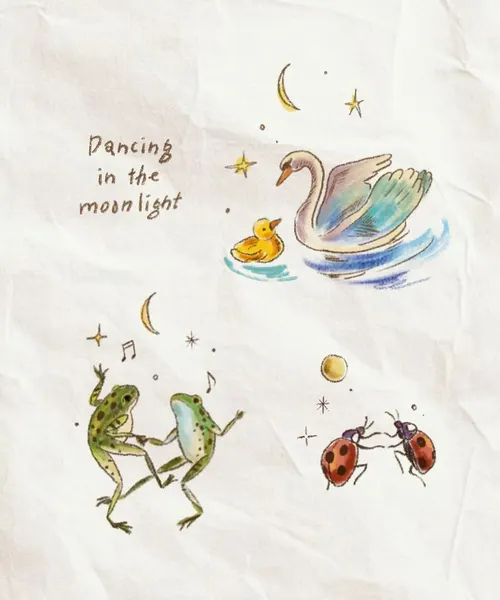 Dancing
in the
moonlight